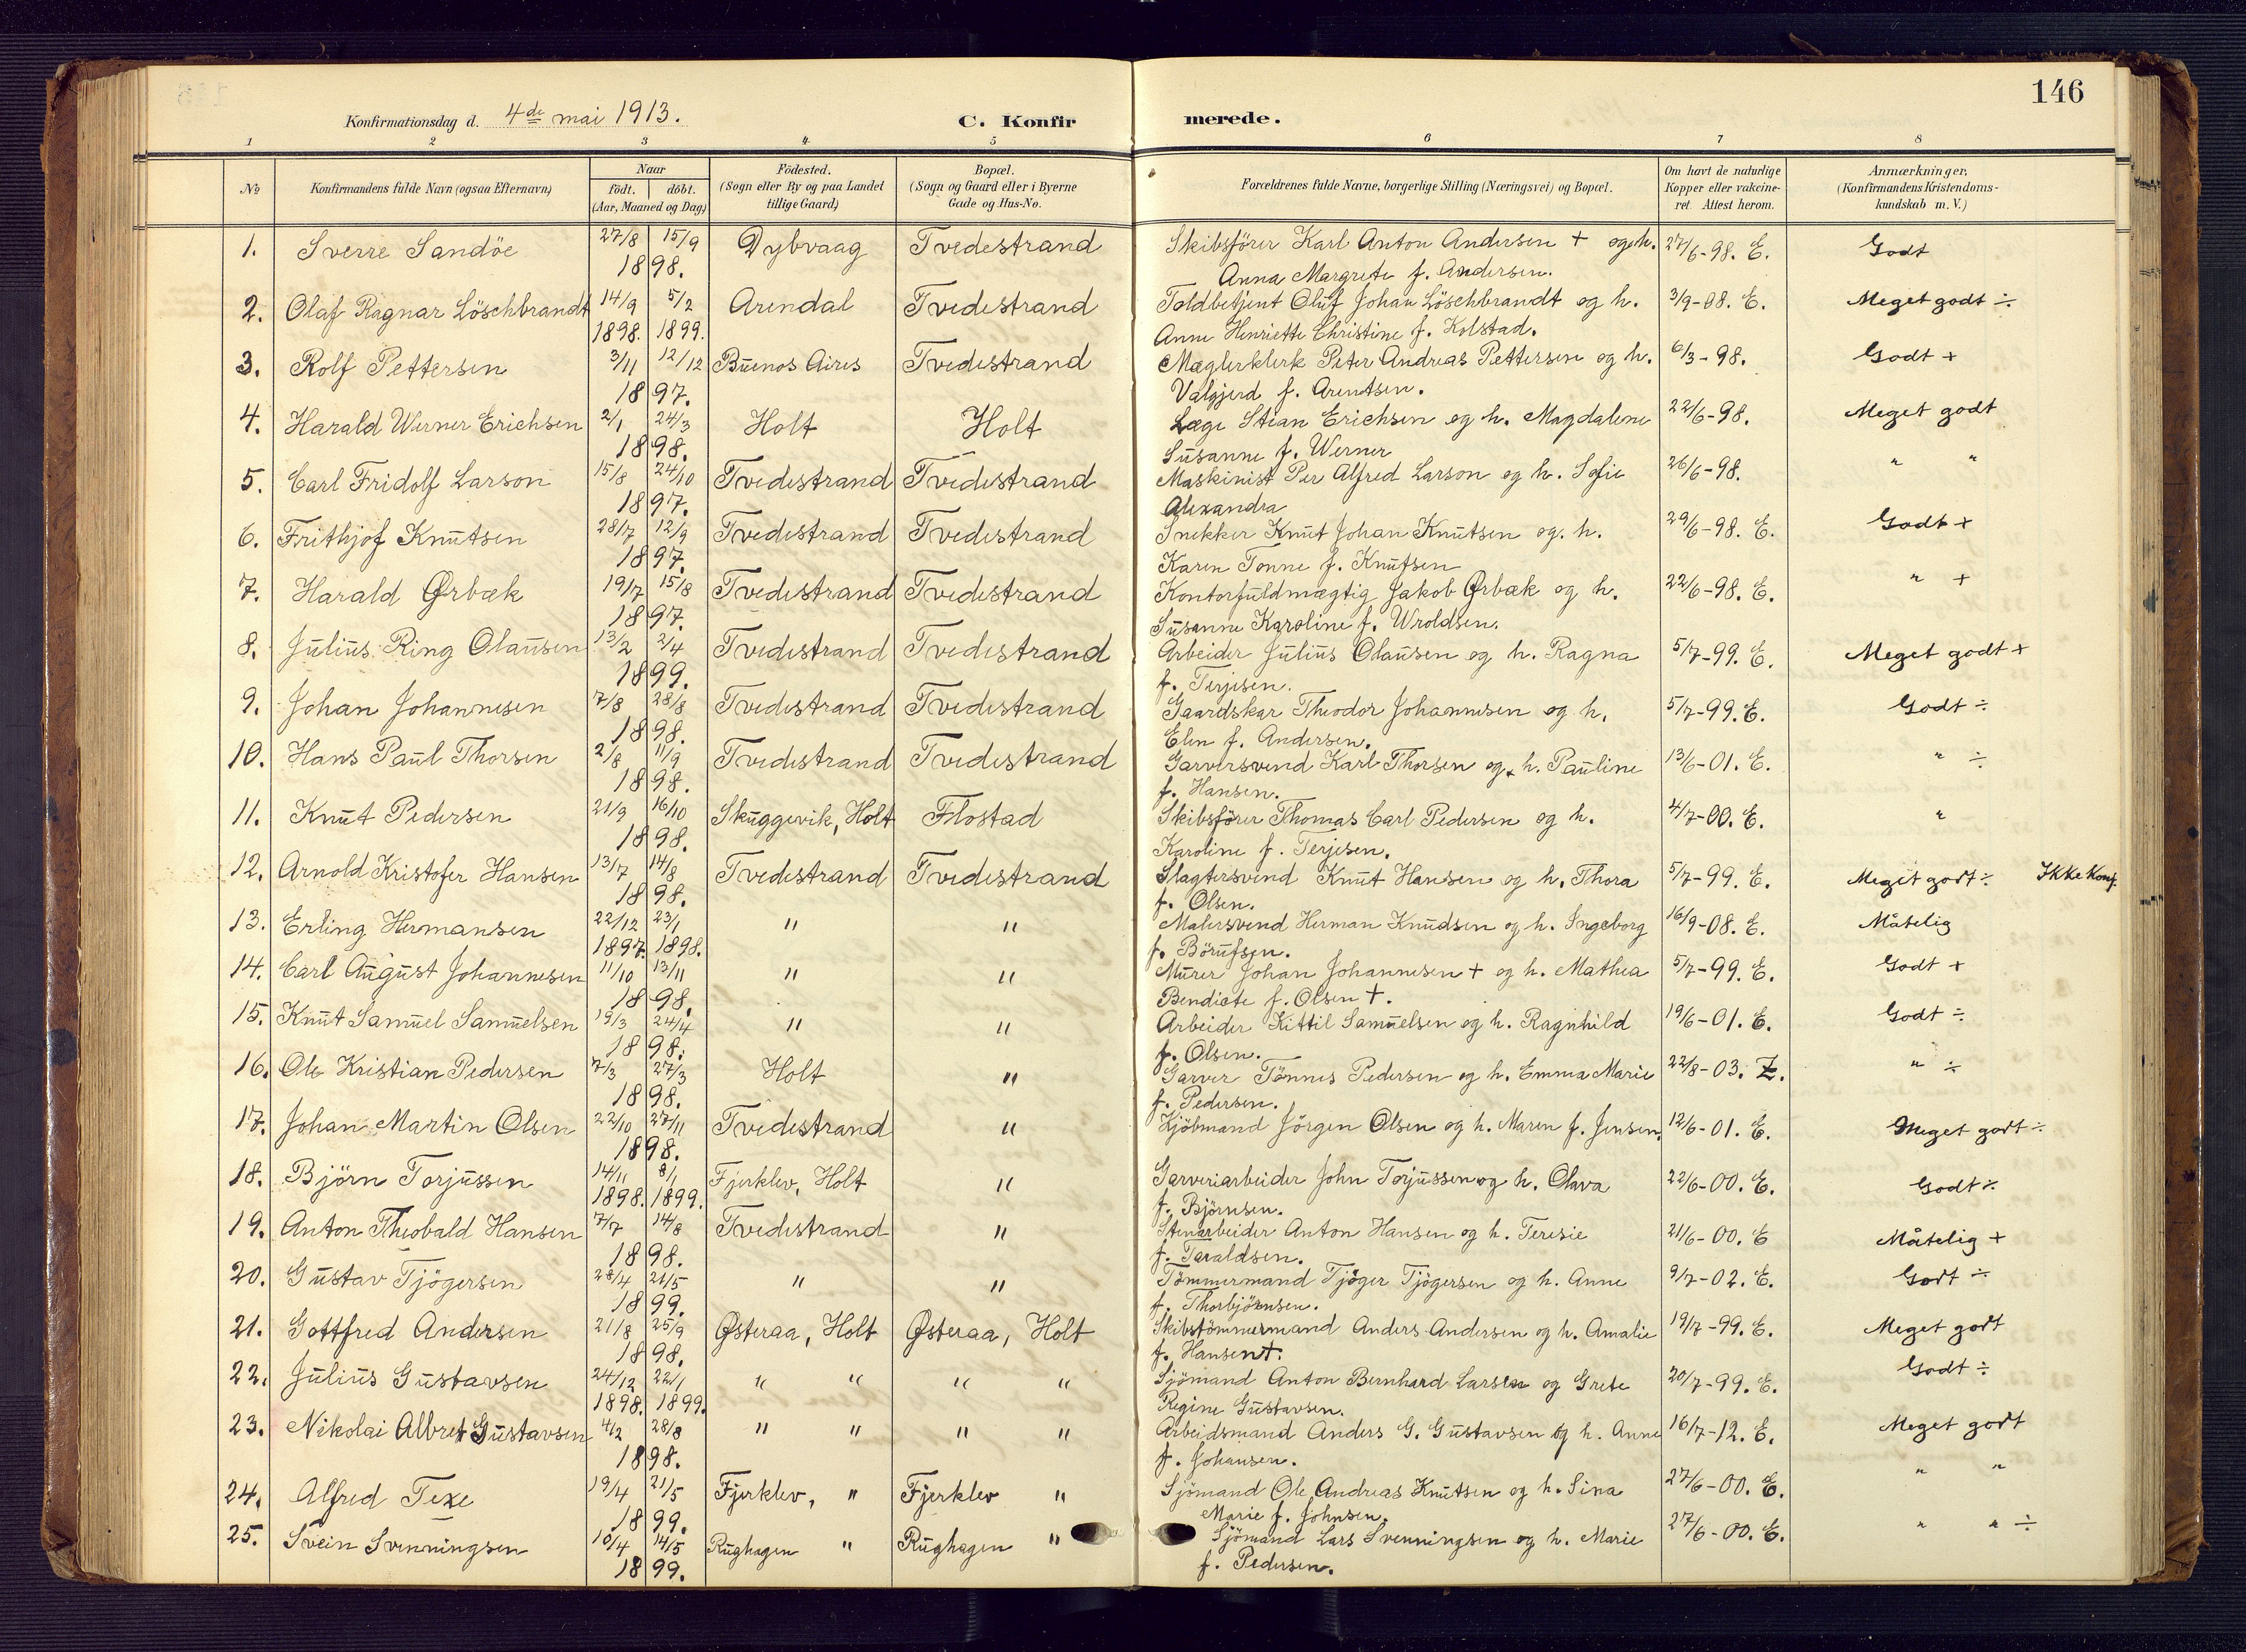 146
Konfirmationsdag d. 4de mai 1913. C. Konfir merede.
1 2 3 4 5 6 7 8
No Konfirmandens fulde Navn (ogsaa Efternavn) Naar født. døbt. (Aar, Maaned og Dag) Fødested. (Sogn eller By og paa Landet tillige Gaard) Bopæl. (Sogn og Gaard eller i Byerne Gade og Hus-No. Forældrenes fulde Navne, borgerlige Stilling (Næringsvei) og Bopæl. Om havt de naturlige Kopper eller vakcineret. Attest herom. Anmærkninger, (Konfirmandens Kristendomskundskab m. V.)
1. Sverre Sandöe 27/8 15/9 Dybvaag Tvedestrand Skibsförer Karl Anton Andersen + og h. 27/6-98. E. Godt
1898. Anna Margrete f. Andersen.
2. Olaf Ragnar Löschbrandt 14/9 5/2 Arendal Tvedestrand Toldbetjent Oluf Johan Löschbrandt og h. 3/9-98. E. Meget godt ÷
1898. 1899. Anne Henriette Christine f. Kolstad.
3. Rolf Pettersen 3/11 12/12 Buenos Aires Tvedestrand Mæglerklerk Peter Andreas Pettersen og h. 6/3-98. Godt +
1897. Valgjerd f. Arentsen.
4. Harald Werner Erichsen 2/1 24/3 Holt Holt Læge Stian Erichsen og h. Magdalene 22/6-98. Meget godt
1898. Susanne f. Werner
5. Carl Fridolf Larson 15/8 24/10 Tvedestrand Tvedestrand Maskinist Per Alfred Larson og h. Sofie 26/6-98. " "
1897. Alexandra
6. Frithjof Knutsen 28/7 12/9 Tvedestrand Tvedestrand Snekker Knut Johan Knutsen og. h. 29/6-98. E. Godt +
1897. Karen Tonne f. Knutsen
7. Harald Ørbæk 19/7 15/8 Tvedestrand Tvedestrand Kontorfuldmægtig Jakob Ørbæk og h. 22/6-98. E. " +
1897. Susanne Karoline f. Wroldsen.
8. Julius Ring Olausen 13/2 2/4 Tvedestrand Tvedestrand Arbeider Julius Olausen og h. Ragna 5/7-99. E. Meget godt +
1899. f. Terjesen.
9. Johan Johannesen 7/8 28/8 Tvedestrand Tvedestrand Gaardskar Theodor Johannesen og h. 5/7-99. E. Godt ÷
1898. Elen f. Andersen.
10. Hans Paul Thorsen 2/8 11/9 Tvedestrand Tvedestrand Garversvend Karl Thorsen og h. Pauline 13/6-01. E. " ÷
1898. f. Hansen.
11. Knut Pedersen 21/9 16/10 Skuggevik, Holt Flostad Skibsförer Thomas Carl Pedersen og h. 4/7-00. E. "
1898. Karoline f. Terjesen.
12. Arnold Kristofer Hansen 13/7 14/8 Tvedestrand Tvedestrand Slagtersvend Knut Hansen og h. Thora 5/7-99. E. Meget godt ÷ Ikke Konf.
1898. f. Olsen.
13. Erling Hermansen 22/12 23/1 " " Malersvend Herman Knudsen og h. Ingeborg 16/9-08. E. Måtelig
1897. 1898. f. Börufsen.
14. Carl August Johannesen 11/10 13/11 " " Murer Johan Johannesen + og h. Mathea 5/7-99. E. Godt +
1898. Bendicte f. Olsen +.
15. Knut Samuel Samuelsen 19/3 24/4 " " Arbeider Kittil Samuelsen og h. Ragnhild 19/6-01. E. Godt ÷
1898. f. Olsen.
16. Ole Kristian Pedersen 7/3 27/3 Holt " Garver Tönnes Pedersen og h. Emma Marie 22/8-03. Z. " ÷
1898. f. Pedersen.
17. Johan Martin Olsen 22/10 27/11 Tvedestrand " Kjöbmand Jörgen Olsen og h. Maren f. Jensen. 12/6-01. E. Meget godt ÷
1898.
18. Björn Torjussen 14/11 8/1 Fjerklev, Holt " Garveriarbeider John Torjussen og h. Olava 22/6-00. E. Godt ÷
1898. 1899. f. Björnsen.
19. Anton Theobald Hansen 7/7 14/8 Tvedestrand " Stenarbeider Anton Hansen og h. Teresie 21/6-00. E Måtelig +
1898. f. Taraldsen.
20. Gustav Tjögersen 28/4 21/5 " " Tömmermand Tjöger Tjögersen og h. Anne 9/7-02. E. Godt ÷
1899. f. Thorbjörnsen.
21. Gottfred Andersen 21/8 25/9 Østeraa, Holt Østeraa, Holt Skibstömmermand Anders Andersen og h. Amalie 19/7-99. E. Meget godt
1898. f. Hansen +.
22. Julius Gustavsen 24/12 22/1 " " " " Sjömand Anton Bernhard Larsen og Grete 20/7-99. E. Godt ÷
1898. 1899. Regine Gustavsen.
23. Nikolai Albret Gustavsen 4/2 28/8 " " " " Arbeidsmand Anders G. Gustavsen og h. Anne 16/7-12. E. Meget godt
1898. f. Johansen.
24. Alfred Texe 19/4 21/5 Fjerklev, " Fjerklev " Sjömand Ole Andreas Knutsen og h. Sina 27/6-00. E. " "
1899. Marie f. Johnsen.
25. Svein Svenningsen 10/4 14/5 Rughagen " Rughagen " Sjömand Lars Svenningsen og h. Marie 27/6-00. E. " " ÷
1899. f. Pedersen.